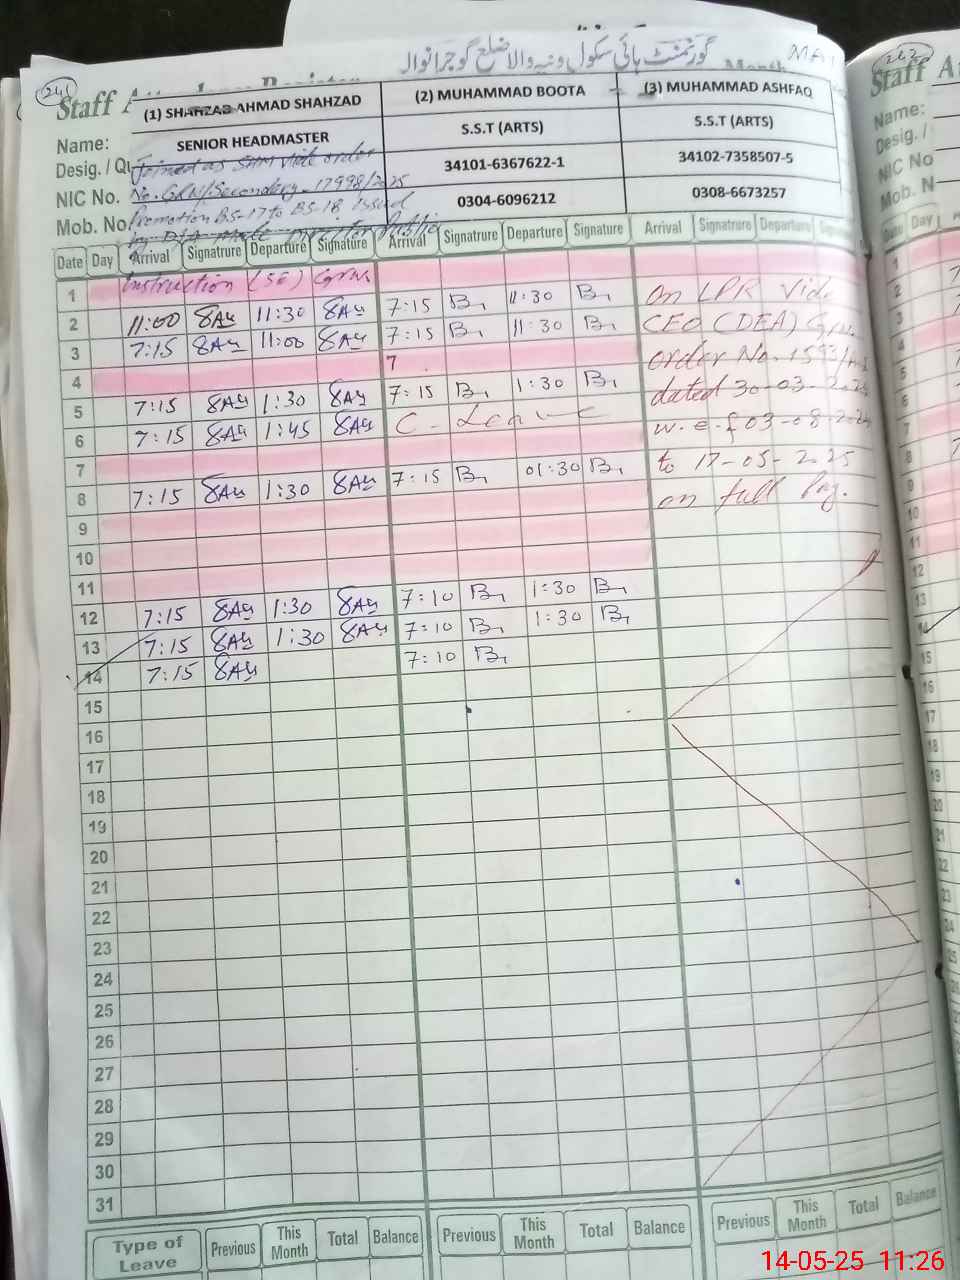 241
گورنمنٹ ہائی سکول ونیہ والا ضلع گوجرانوالہ
Staff Month
242
Staff At
Name: (1) SHAHZAB AHMAD SHAHZAD (2) MUHAMMAD BOOTA (3) MUHAMMAD ASHFAQ
Desig. / Qu SENIOR HEADMASTER S.S.T (ARTS) S.S.T (ARTS)
NIC No. Joined as SHM vide order 34101-6367622-1 34102-7358507-5
No. GRW/Secondary-17998/2025
Mob. No. Promotion BS-17 to BS-18 issued 0304-6096212 0308-6673257
by Public
Date Day Arrival Signatrure Departure Signature Arrival Signatrure Departure Signature Arrival Signatrure Departure
Instruction (SE) Grw
1 On LPR Vide
2 11:00 8AM 11:30 8AM 7:15 B 11:30 B CEO (DEA) Grw
3 7:15 8AM 11:00 8AM 7:15 B 11:30 B order No.
4 7 dated 30-03-
5 7:15 8AM 1:30 8AM 7:15 B 1:30 B w.e.f 03-08-
6 7:15 8AM 1:45 8AM C. Leave
7 to 17-05-2025
8 7:15 8AM 1:30 8AM 7:15 B 01:30 B on full Pay.
9
10
11
12 7:15 8AM 1:30 8AM 7:10 B 1:30 B
13 7:15 8AM 1:30 8AM 7:10 B 1:30 B
14 7:15 8AM 7:10 B
15
16
17
18
19
20
21
22
23
24
25
26
27
28
29
30
31
Type of Leave Previous This Month Total Balance Previous This Month Total Balance Previous This Month Total Balance
Name:
Desig. /
NIC No
Mob. N
Date Day
1
2
3
4
5
6
7
8
9
10
11
12
13
14
15
16
17
18
19
20
21
22
23
24
25
14-05-25 11:26